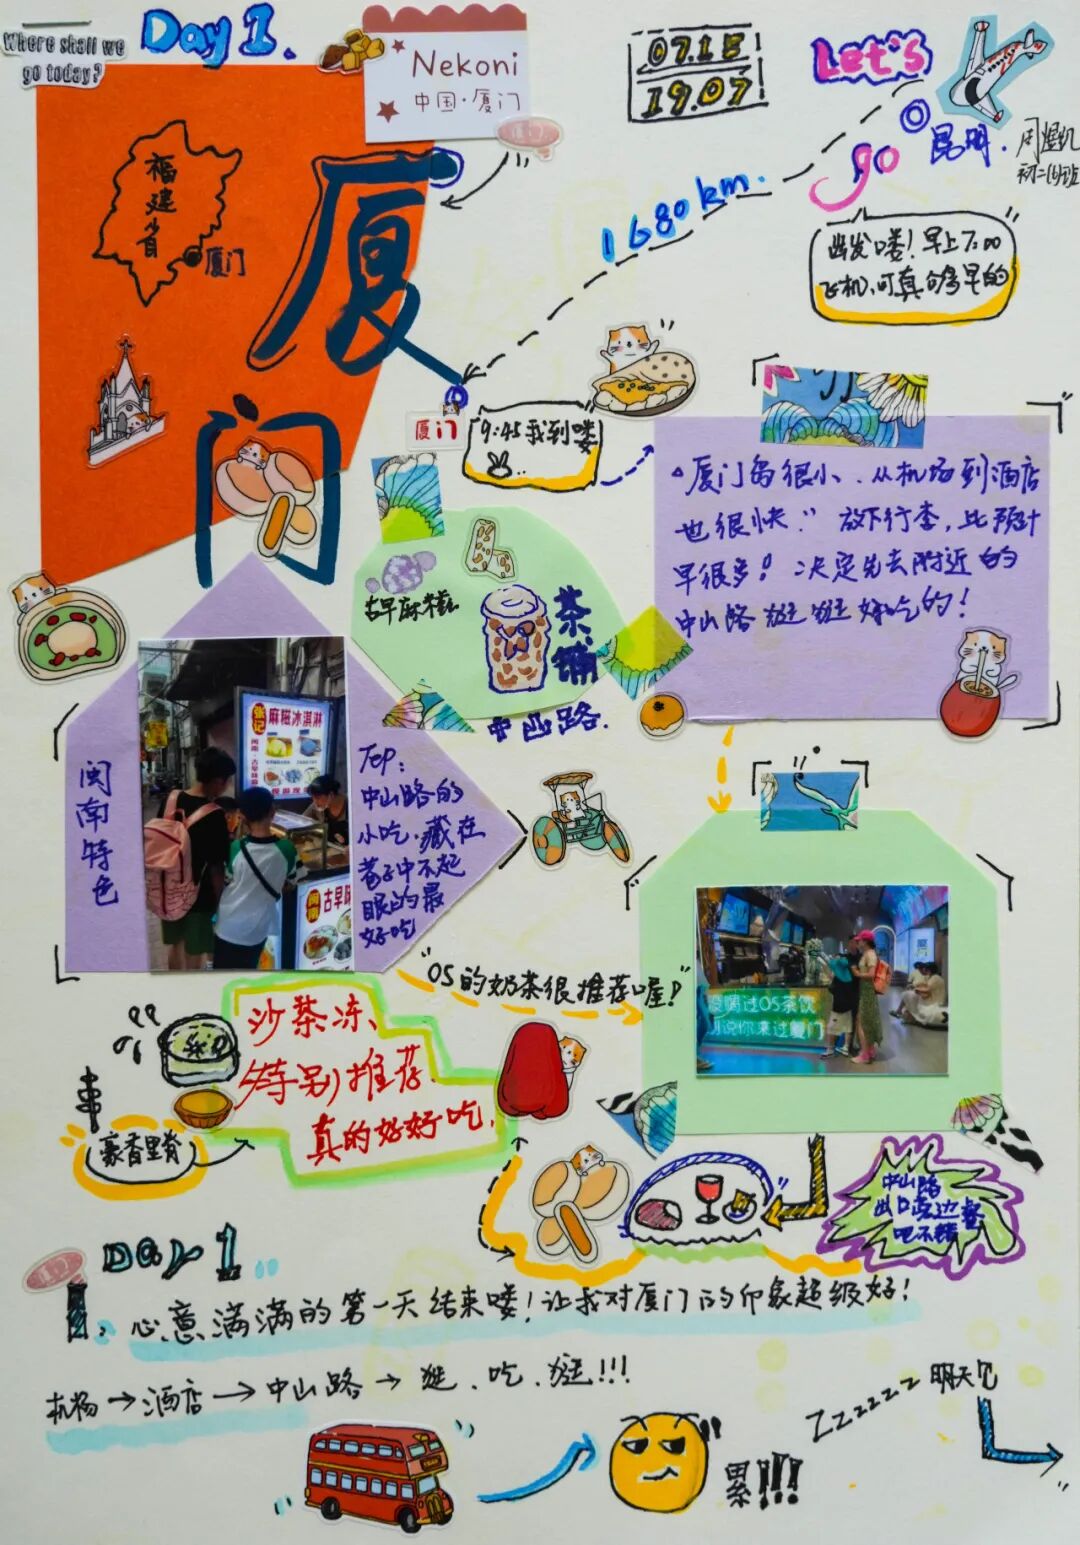 Where shall we
go today?
Day 1.
Nekoni
中国·厦门
厦门
07.15
19.07
Let's
go
昆明.
初二(6)班
1680 km.
出发喽!早上7:00
飞机,可真够早的
福建省
厦门
厦门
厦门
9:45我到喽
厦门岛很小、从机场到酒店
也很快.” 放下行李,比预计
早很多! 决定先去附近的
中山路逛逛好吃的!
古早麻糍
茶铺
中山路.
闽南特色
麻糍冰淇淋
古早味
Tep:
中山路的
小吃.藏在
巷子中不起
眼的最
好吃
"OS的奶茶很推荐喔!"
没喝过OS茶饮
别说你来过厦门
沙茶冻、
特别推荐.
真的好好吃.
豪香里脊
中山路
出口旁边餐
吧不错
Day 1
心意满满的第一天结束喽!让我对厦门的印象超级好!
机场→酒店→中山路→逛.吃.逛!!!
Zzzzzzz 明天见
累!!!